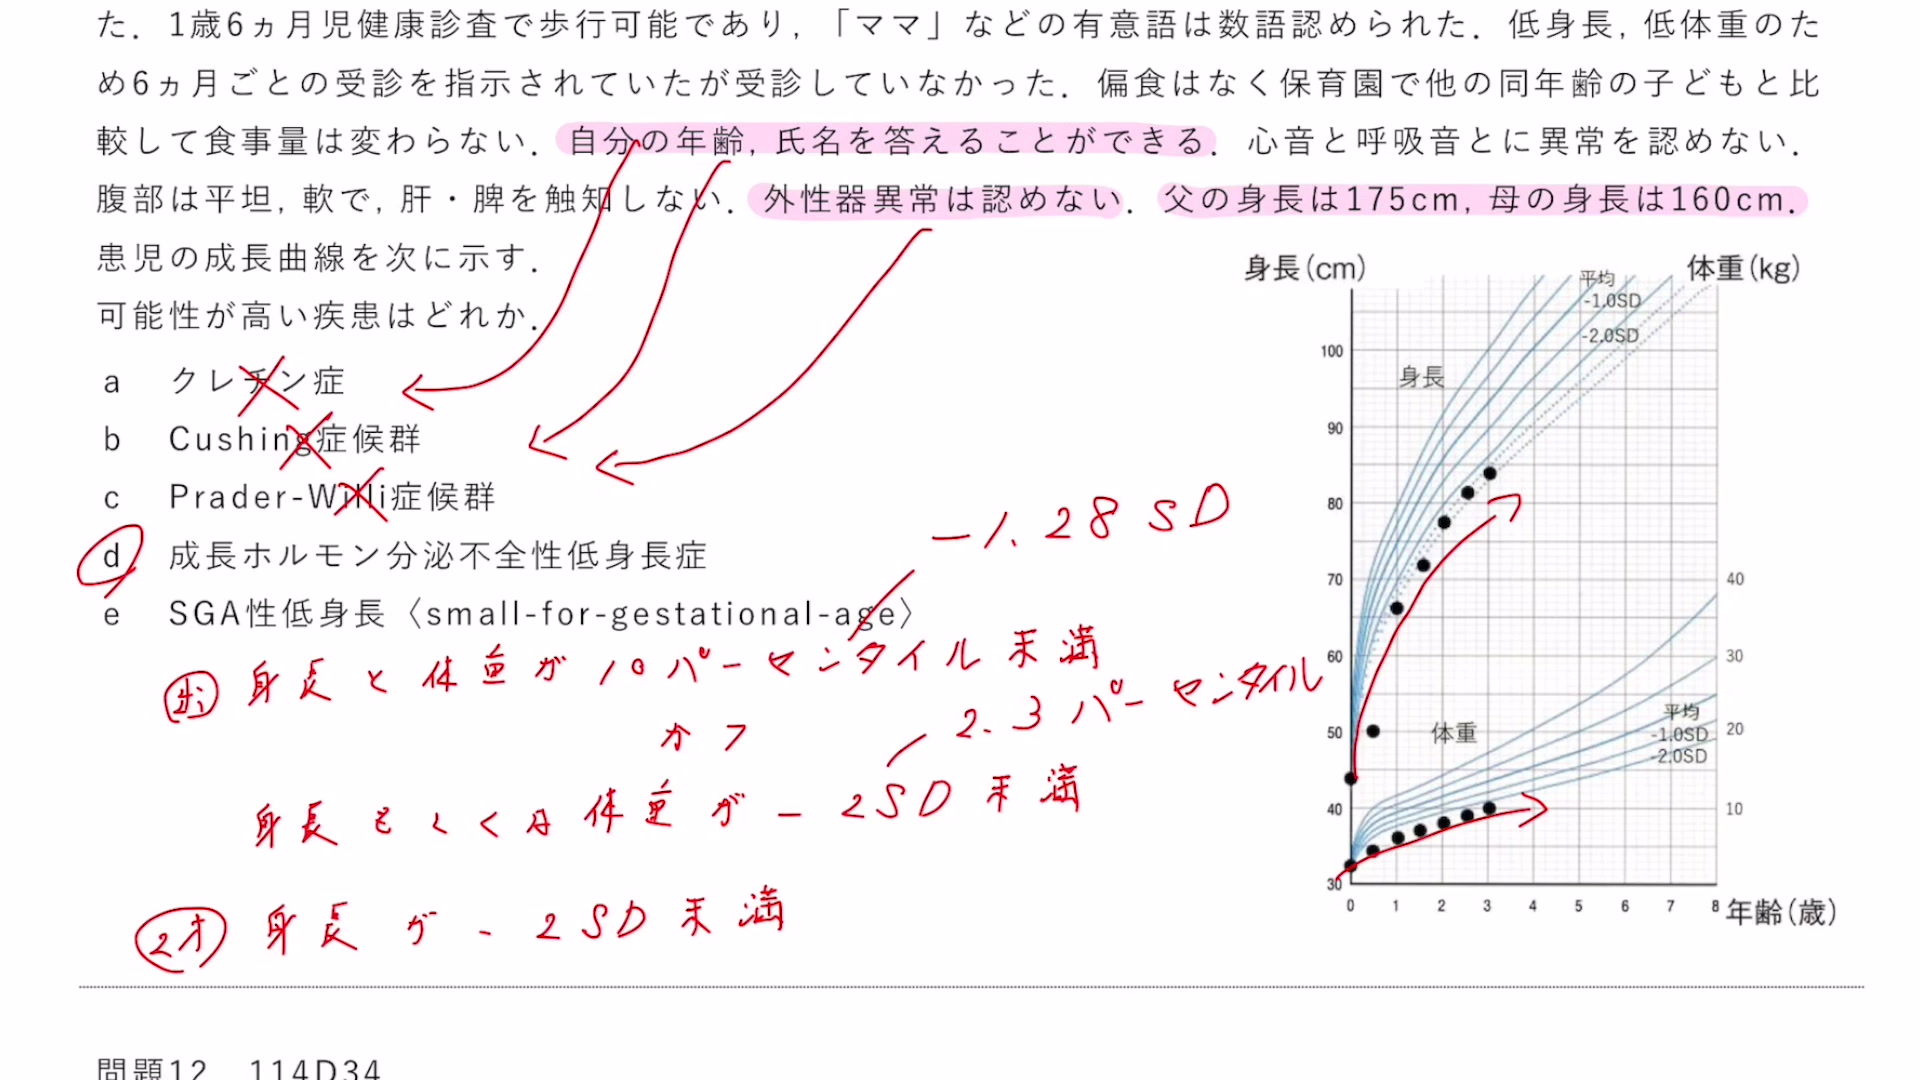 た．1歳6ヵ月児健康診査で歩行可能であり，「ママ」などの有意語は数語認められた．低身長，低体重のた
め6ヵ月ごとの受診を指示されていたが受診していなかった．偏食はなく保育園で他の同年齢の子どもと比
較して食事量は変わらない．自分の年齢，氏名を答えることができる．心音と呼吸音とに異常を認めない．
腹部は平坦，軟で，肝・脾を触知しない．外性器異常は認めない．父の身長は175cm，母の身長は160cm．
患児の成長曲線を次に示す．
可能性が高い疾患はどれか．
a クレチン症
b Cushing症候群
c Prader-Willi症候群
d 成長ホルモン分泌不全性低身長症
e SGA性低身長〈small-for-gestational-age〉
-1.28SD
身長と体重が10パーセンタイル未満
2.3パーセンタイル
かつ
身長もしくは体重が-2SD未満
2才 身長が-2SD未満
身長(cm) 体重(kg)
平均
-1.0SD
-2.0SD
身長
100
90
80
70
60
50
40
30
40
30
20
10
体重
平均
-1.0SD
-2.0SD
0 1 2 3 4 5 6 7 8 年齢(歳)
問題12 114D34